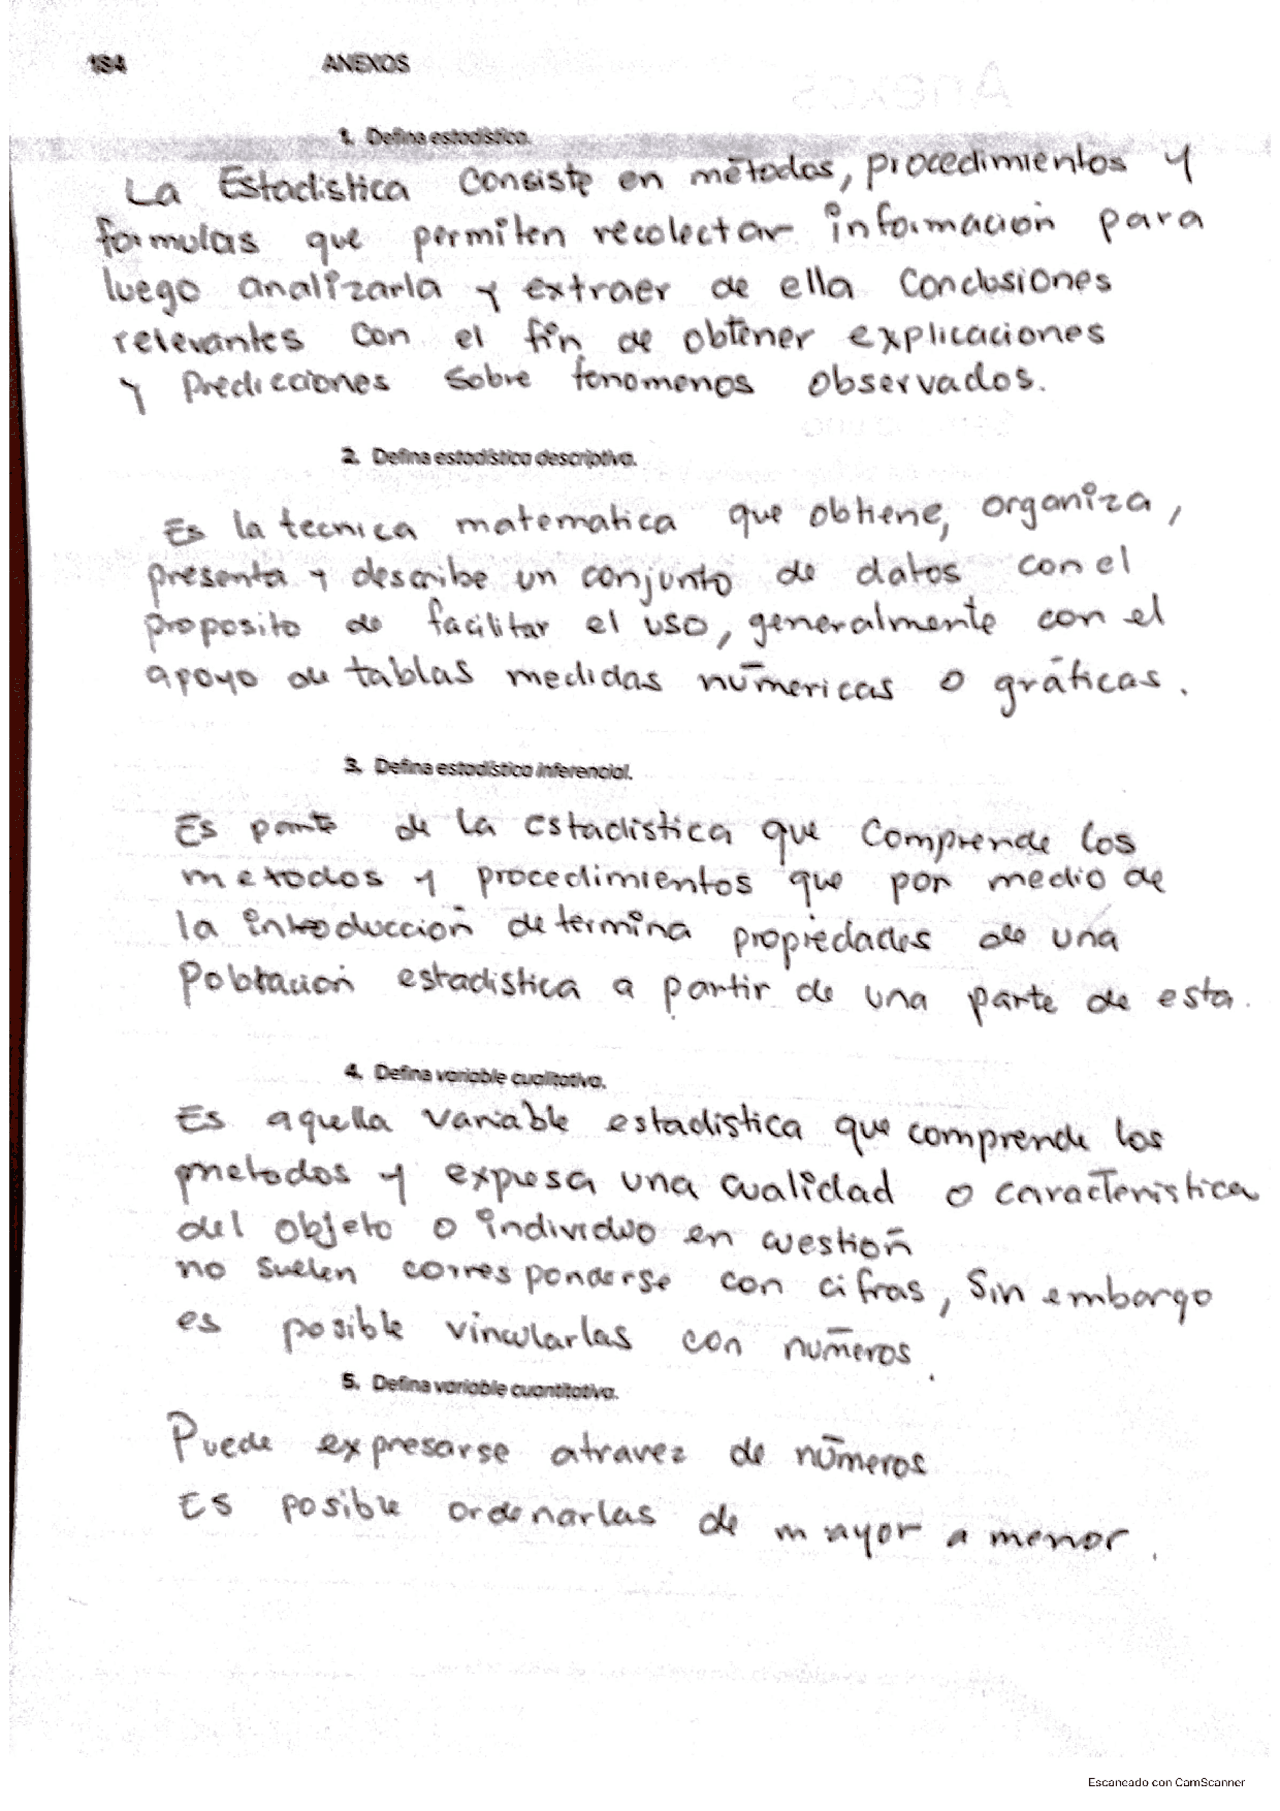 184 ANEXOS
1. Defina estadística.
La Estadistica Consiste en métodos, procedimientos y
formulas que permiten recolectar información para
luego analizarla y extraer de ella Conclusiones
relevantes con el fin de obtener explicaciones
y Predicciones sobre fenomenos observados.
2. Defina estadística descriptiva.
Es la tecnica matematica que obtiene, organiza,
presenta y describe un conjunto de datos con el
proposito de facilitar el uso, generalmente con el
apoyo de tablas medidas númericas o gráficas.
3. Defina estadística inferencial.
Es parte de la estadistica que Comprende los
metodos y procedimientos que por medio de
la introducción determina propiedades de una
Población estadistica a partir de una parte de esta.
4. Defina variable cualitativa.
Es aquella variable estadistica que comprende los
metodos y expresa una cualidad o caracteristica
del objeto o individuo en cuestión
no suelen corresponderse con cifras, sin embargo
es posible vincularlas con números.
5. Defina variable cuantitativa.
Puede expresarse atravez de números
Es posible ordenarlas de mayor a menor.
Escaneado con CamScanner